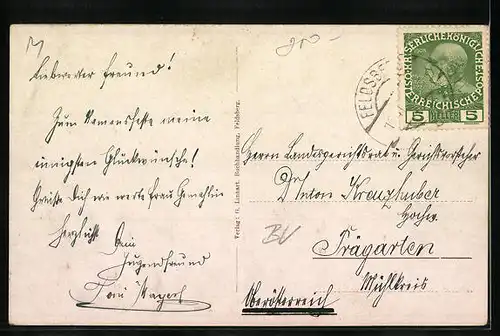 Liebwerter Freund!
Zum Namensfeste meine
innigsten Glückwünsche!
Grüße Dich wie werte Frau Gemahlin
herzlichst Dein
Jugendfreund
Toni Mayerh
Verlag: Buchhandlung, Feldsberg.
FELDSBE
KAISERLICHE KÖNIGLICHE
ÖSTERREICHISCHE
5 HELLER 5
Herrn Landesgerichtsrat u. Gerichtsvorsteher
Dr Anton Kranzhuber
Hochw.
Prägarten
Mühlkreis
Oberösterreich
BV